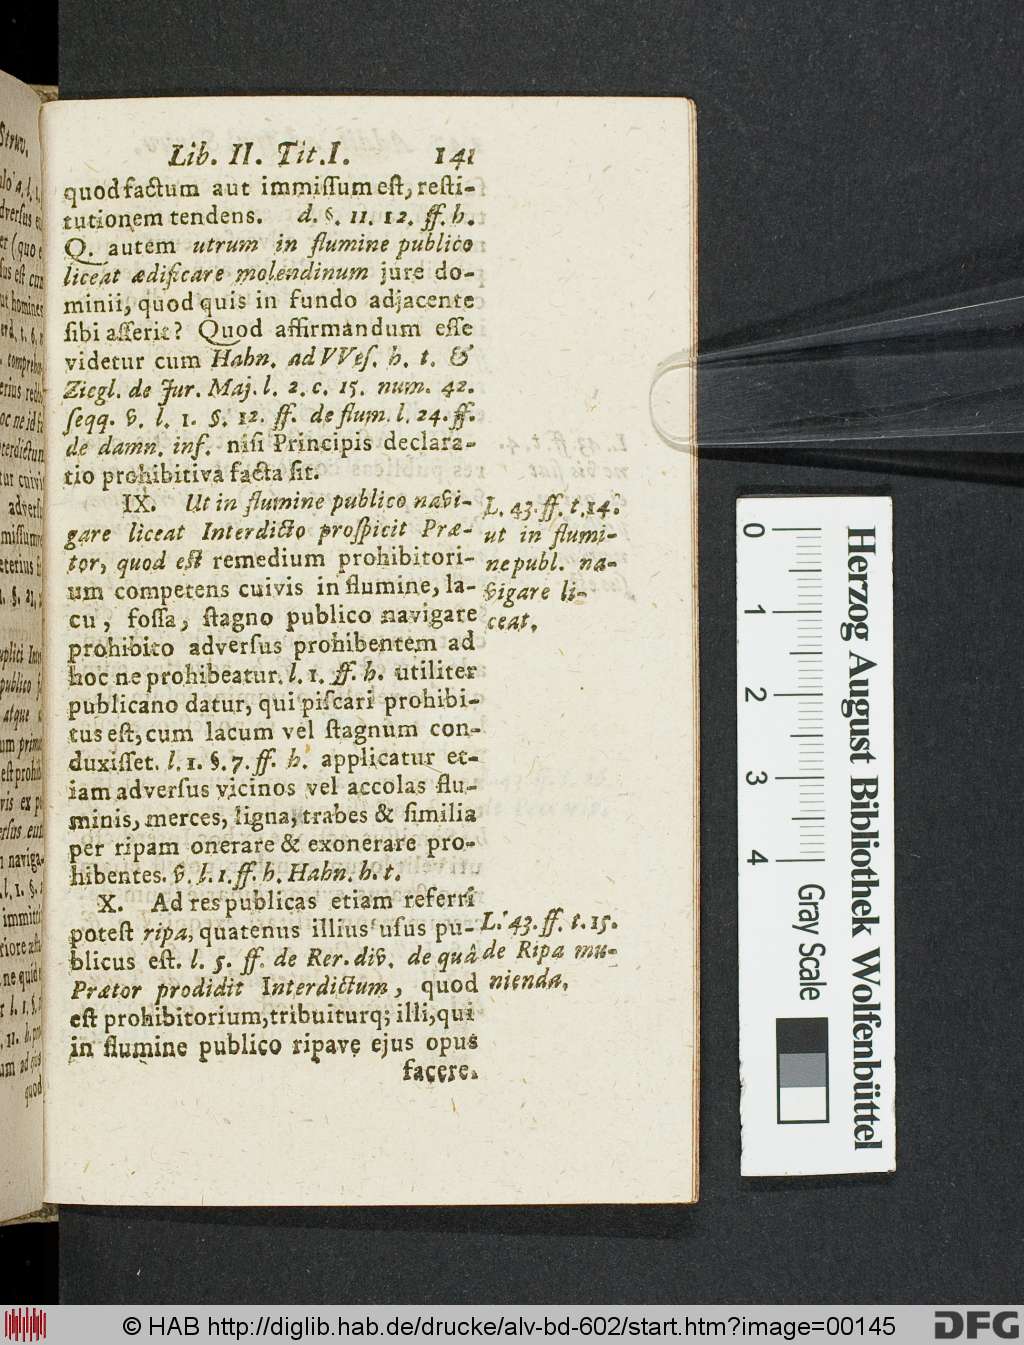 Lib. II. Tit. I. 141
quod factum aut immiſſum eſt, reſti-
tutionem tendens. d. §. 11. 12. ff. h.
Q. autem utrum in flumine publico
liceat ædificare molendinum jure do-
minii, quod quis in fundo adjacente
ſibi aſſerit? Quod affirmandum eſſe
videtur cum Hahn. ad VVeſ. h. t. &
Ziegl. de Jur. Maj. l. 2. c. 15. num. 42.
ſeqq. v. l. 1. §. 12. ff. de flum. l. 24. ff.
de damn. inf. niſi Principis declara-
tio prohibitiva facta ſit.
IX. Ut in flumine publico navi-
gare liceat Interdicto proſpicit Præ-
tor, quod eſt remedium prohibitori-
um competens cuivis in flumine, la-
cu, foſſa, ſtagno publico navigare
prohibito adverſus prohibentem ad
hoc ne prohibeatur. l. 1. ff. h. utiliter
publicano datur, qui piſcari prohibi-
tus eſt, cum lacum vel ſtagnum con-
duxiſſet. l. 1. §. 7. ff. h. applicatur et-
iam adverſus vicinos vel accolas flu-
minis, merces, ligna, trabes & ſimilia
per ripam onerare & exonerare pro-
hibentes. v. l. 1. ff. h. Hahn. h. t.
X. Ad res publicas etiam referri
poteſt ripa, quatenus illius uſus pu-
blicus eſt. l. 5. ff. de Rer. div. de quâ
Prætor prodidit Interdictum, quod
eſt prohibitorium, tribuiturq; illi, qui
in flumine publico ripave ejus opus
facere.
L. 43. ff. t. 14.
ut in flumi-
ne publ. na-
vigare li-
ceat.
L. 43. ff. t. 15.
de Ripa mu-
nienda.
0 1 2 3 4
Gray Scale
Herzog August Bibliothek Wolfenbüttel
© HAB http://diglib.hab.de/drucke/alv-bd-602/start.htm?image=00145
DFG